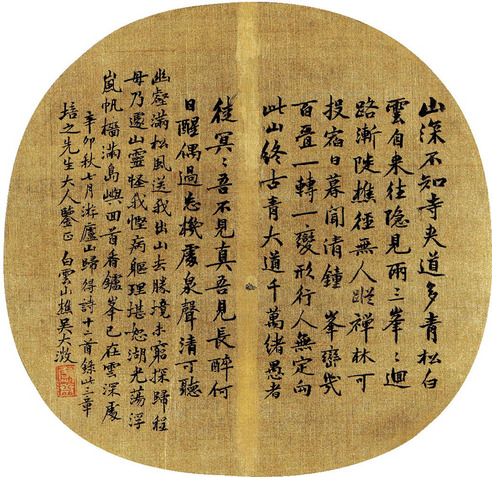 山深不知寺夾道多青松白
雲自來往隱見兩三峯峯迴
路漸陡樵徑無人蹤禪林可
投宿日暮聞清鐘 峯巒幾
百疊一轉一變形行人無定向
此山終古青大道千萬緒愚者
徒冥冥吾不見真吾見長醉何
日醒偶過忘機處泉聲清可聽
幽壑滿松風送我出山去勝境未窮探歸程
毋乃遽山靈怪我慳病軀理堪恕湖光蕩浮
嵐帆檣滿島嶼回首香鑪峯已在雲深處
辛卯秋七月游廬山歸得詩十首錄此三章
培之先生大人鑒正 白雲山樵吳大澂